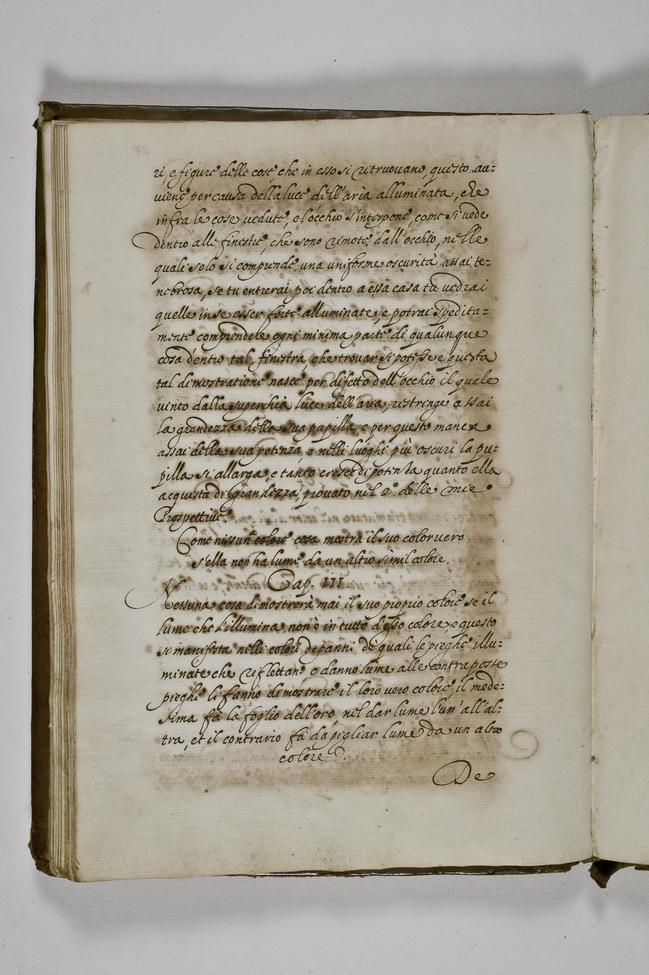 ri, e figure delle cose che in esso si ritruovano, questo au=
uiene per causa della luce dell'aria alluminata, che
infra le cose uedute, e l'occhio s'interpone, come si uede
dentro alle finestre, che sono rimote dall'occhio, nelle
quali solo si comprende una uniforme oscurità assai te=
nebrosa, se tu entrerai poi dentro a essa casa tu uedrai
quelle in se esser forte alluminate, e potrai spedita=
mente comprendere ogni minima parte di qualunque
cosa dentro tal finestra, che trouar si potesse e questa
tal dimostratione nasce per difetto dell'occhio il quale
uinto dalla superchia luce dell'aria, restringe assai
la grandezza della sua pupilla, e per questo manca
assai della sua potenza, e nelli luoghi più oscuri la pu=
pilla si allarga, e tanto cresce di potenza quanto ella
acquista di grandezza, prouato nel 2.º delle mie
Prospettiue.
Come nissun colore cosa mostra il suo color uero
s'ella non ha lume da un altro simil colore.
Cap. III
Nessuna cosa dimostrerà mai il suo proprio colore se il
lume che l'illumina non è in tutto d'esso colore, e questo
si manifesta nelli colori de panni de quali le pieghe illu=
minate che riflettano o danno lume alle contraposte
pieghe li fanno dimostrare il loro uero colore, il mede=
sima fa la foglio dell'oro nel dar lume l'un' all'al=
tra, et il contrario fà da pigliar lume da un altro
colore.
De